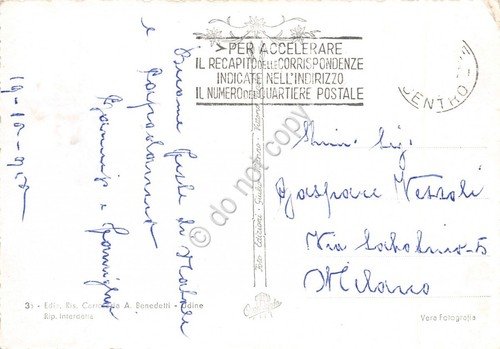 PER ACCELERARE
IL RECAPITO DELLE CORRISPONDENZE
INDICATE NELL'INDIRIZZO
IL NUMERO DEL QUARTIERE POSTALE
CENTRO
Buone Feste di Natale
e Capodanno
e Famiglia
19-12-
Gaspare Vezzoli
Via 5
Milano
do not copy
35 - Ediz. Ris. A. Benedetti - Udine
Rip. Interdetta
Vera Fotografia